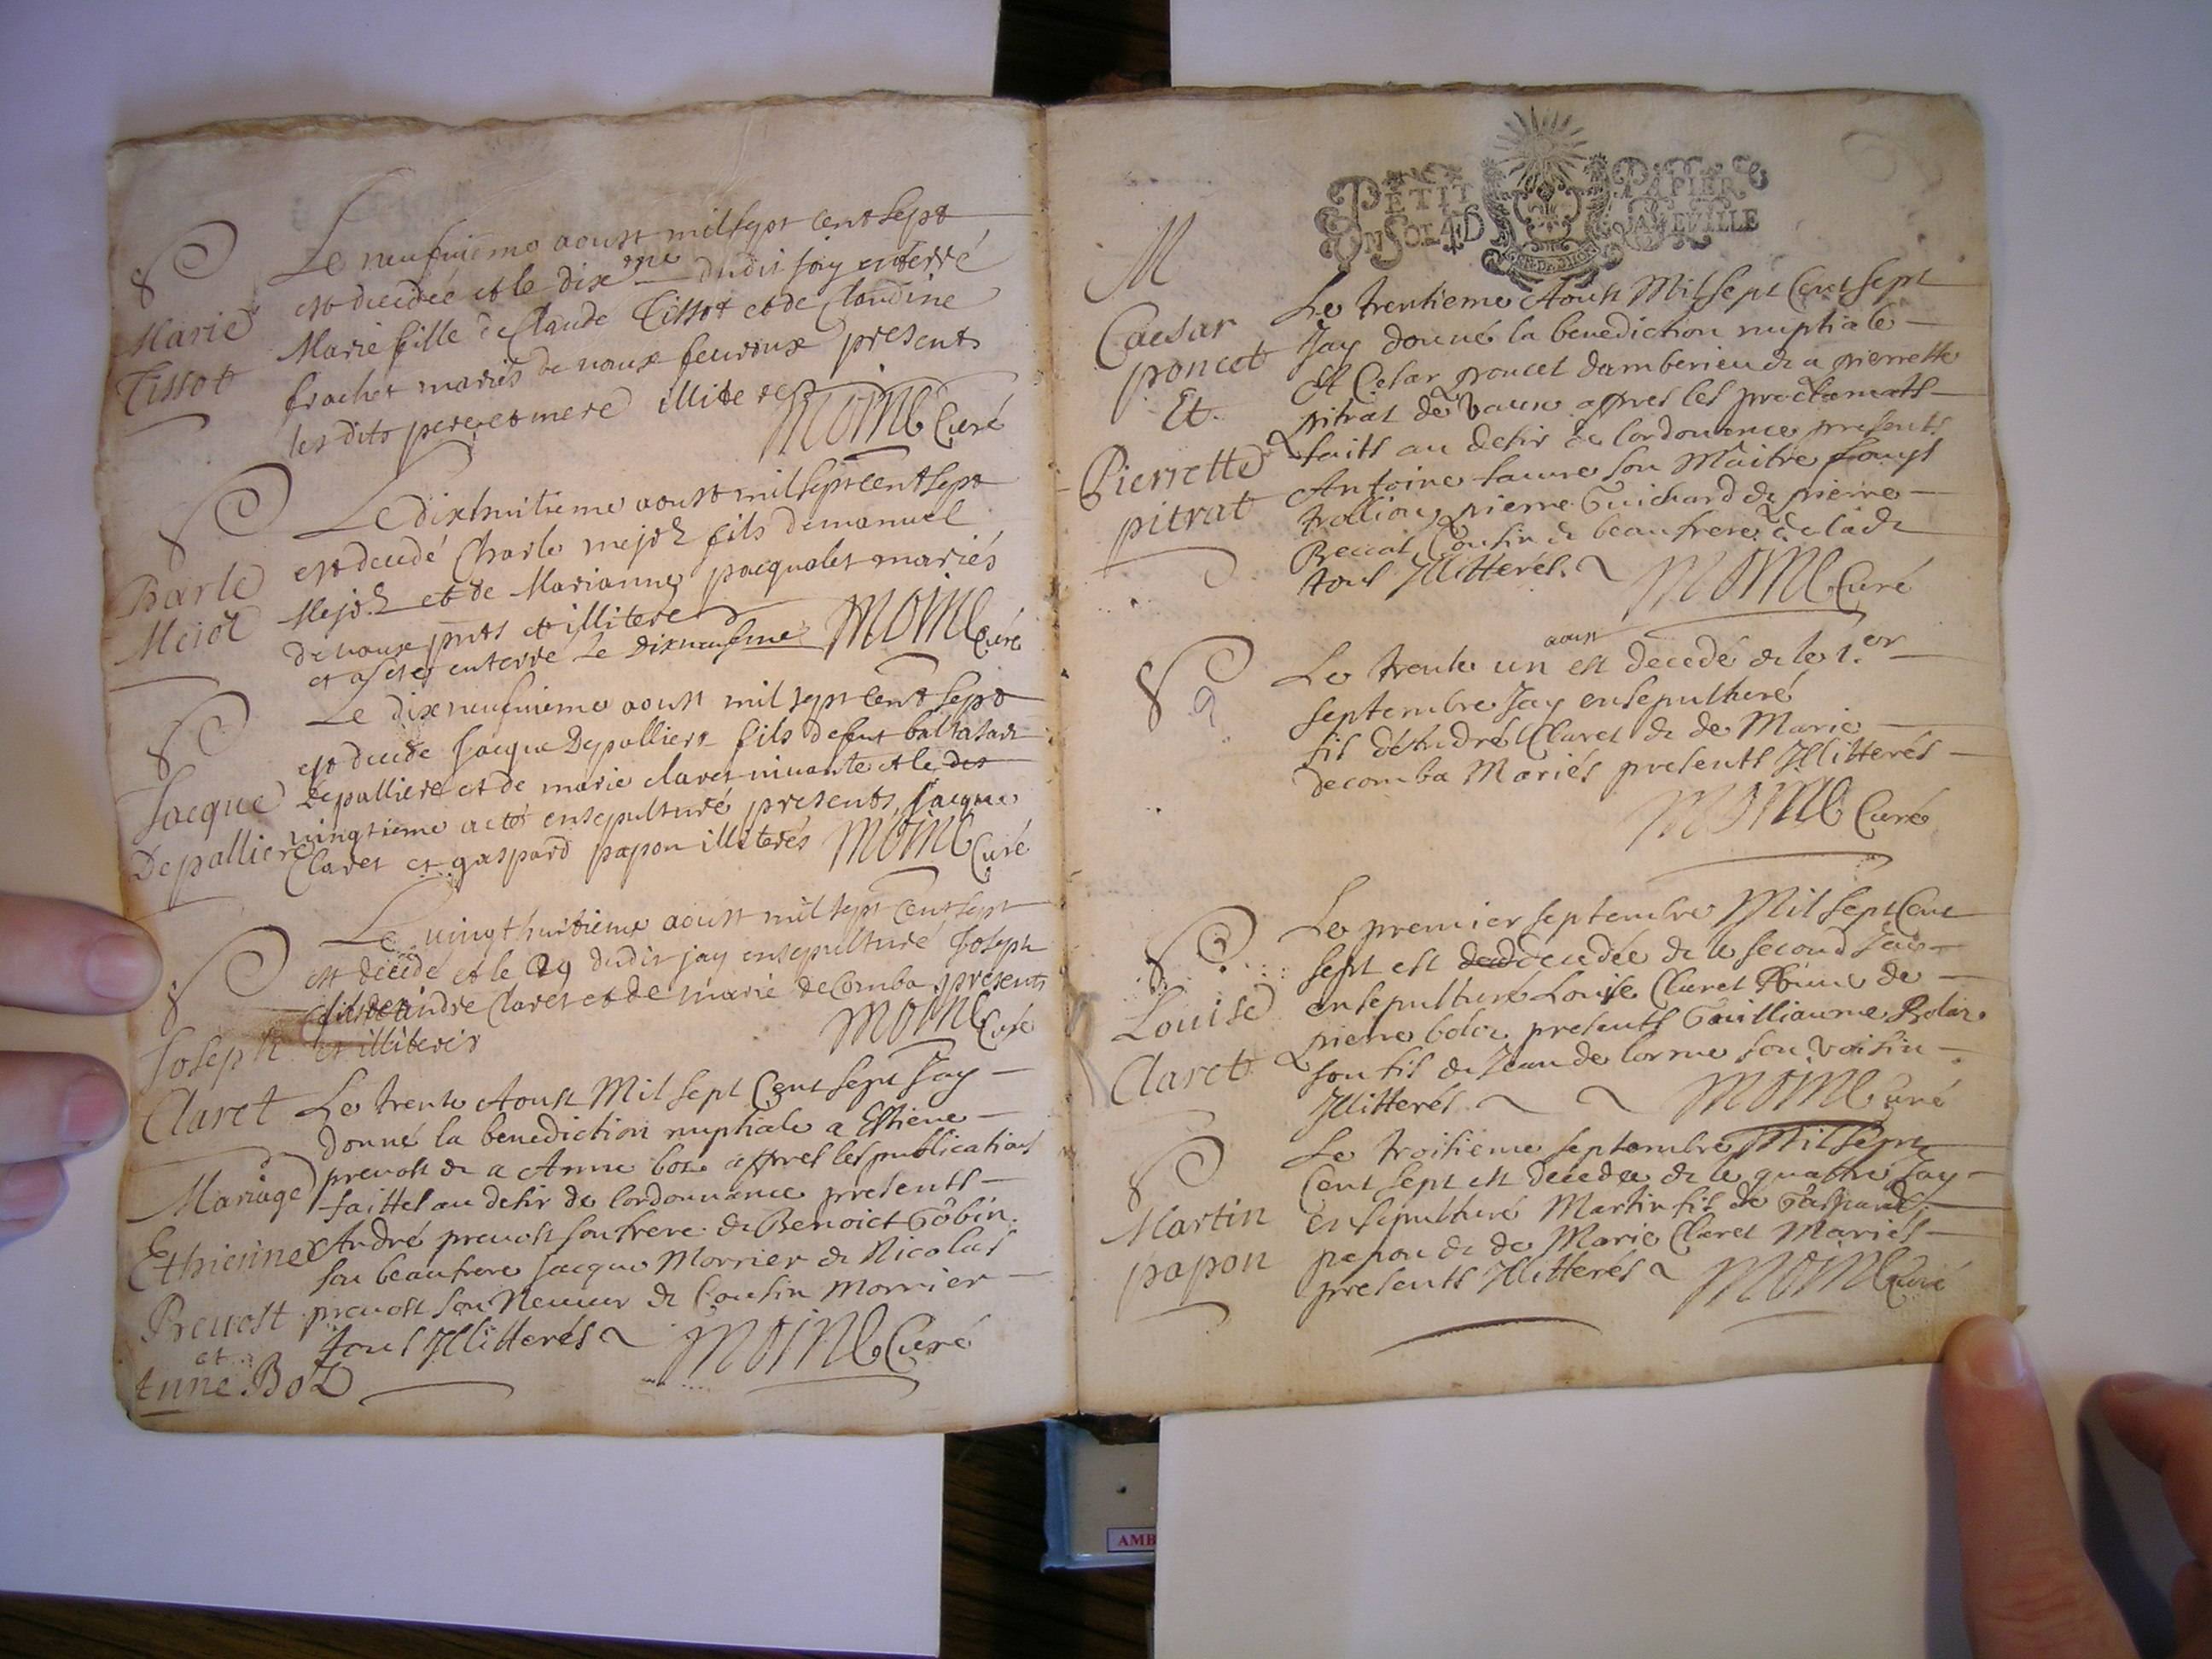 S
Marie
Tissot
Le neufvieme aoust mil sept cent sept
est decedée et le dixme dudit jay enterré
Marie fille de Claude Tissot et de Claudine
frachet mariés de vaux feuroux presents
les dits pere et mere illiteres
Moine Curé
S
Barle
Mejoz
Le dixhuitieme aoust mil sept cent sept
est decedé Charle mejoz fils demanuel
Mejoz et de Marianne pacqualet mariés
de vaux pnts et illitere
et a esté enterré le dixneufme Moine Curé
S
Jacque
Depalliere
Le dixneufvieme aoust mil sept cent sept
est decedé Jacque Depalliere fils defeut baltasard
depalliere et de marie claret vivante et le des
vingtieme a eté ensepulturé presents Jacque
Claret et gaspard papon illiterés Moine Curé
S
Joseph
Claret
Le vingt huitieme aoust mil sept cent sept
est decedé et le 29 dudit jay ensepulturé Joseph
fils de andre Claret et de marie decomba presents
et illiterés
Moine Curé
Mariage
Ethienne
Prevost
et
Anne Boz
Le trente Aoust Mil sept Cent sept Jay
donné la benediction nuptiale a Estiene
prevost & a Anne boz appres les publications
faittes au desir de lordonnance presents
André prevost son frere & Benoict Gobin
son beaufrere Jacque Morrier & Nicolas
prevost son Neveur & Cousin Morrier
tous Illitterés Moine Curé
PETIT PAPIER
UN SOL 4 D LA FEUILLE
M
Caesar
poncet
Et
Pierrette
pitrat
Le trentieme Aoust Mil sept Cent sept
Jay donné la benediction nuptiale
A Cesar poncet damberieu & a pierrette
pitrat de Vaux appres les proclamats
faits au desir de lordonance presents
Antoine faure son Maitre
pierre Guichard & pierre
Cousin & beaufrere de lade
tous Illitterés. Moine Curé
S
aoust
Le trente un est decedé & le 1.er
septembre Jay ensepulturé
fils déAndré Claret & de Marie
decomba Mariés presents Illitterés
Moine Curé
S
Louise
Claret
Le premier septembre Mil sept Cent
sept est deced decedée & le second Jay
ensepulturé Louise Claret femme de
pierre boloz presents Guilliaume Boloz
son fils & Jean de lorme son voisin
Illitterés Moine Curé
S
Martin
papon
Le troisieme septembre Mil sept
Cent sept est decedée & le quattre Jay
ensepulturé Martin fils de Gaspard
papon & de Marie Claret Mariés
presents Illitterés Moine Curé
AMB